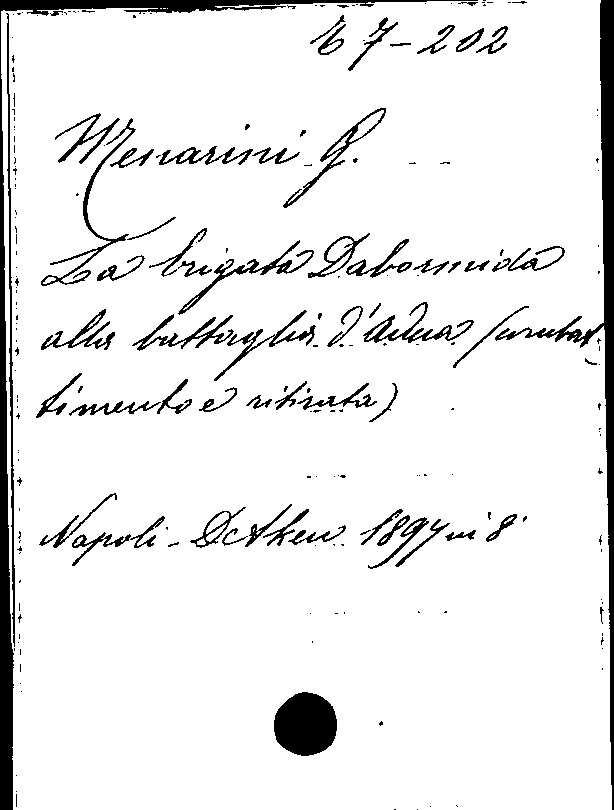 E 7 - 202
Menarini G.
La brigata Dabormida
alla battaglia d'Adua (combat
timento e ritirata)
Napoli - DeAken 1897 in 8°